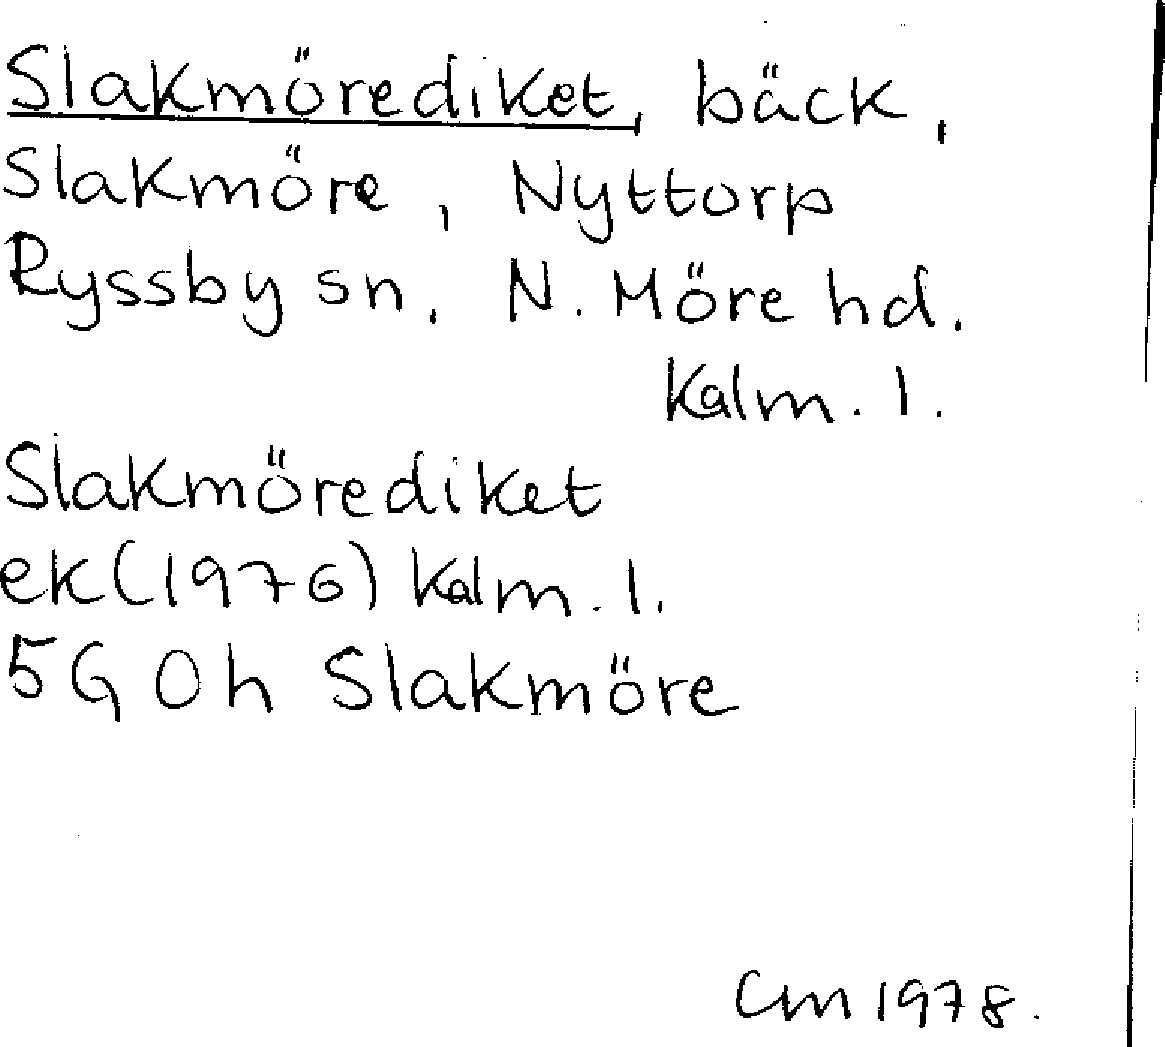 Slakmörediket, bäck,
Slakmöre, Nyttorp
Ryssby sn, N. Möre hd.
Kalm. l.
Slakmörediket
ek(1976) Kalm. l.
5G 0h Slakmöre
Cm 1978.